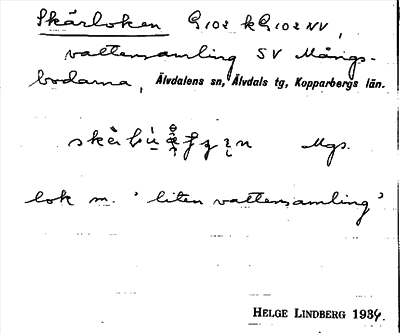 Skårloken G102 k G102 NV,
vattensamling SV Mångs-
bodarna, Älvdalens sn, Älvdals tg, Kopparbergs län.
Mgs.
lok m. 'liten vattensamling'
HELGE LINDBERG 1934.